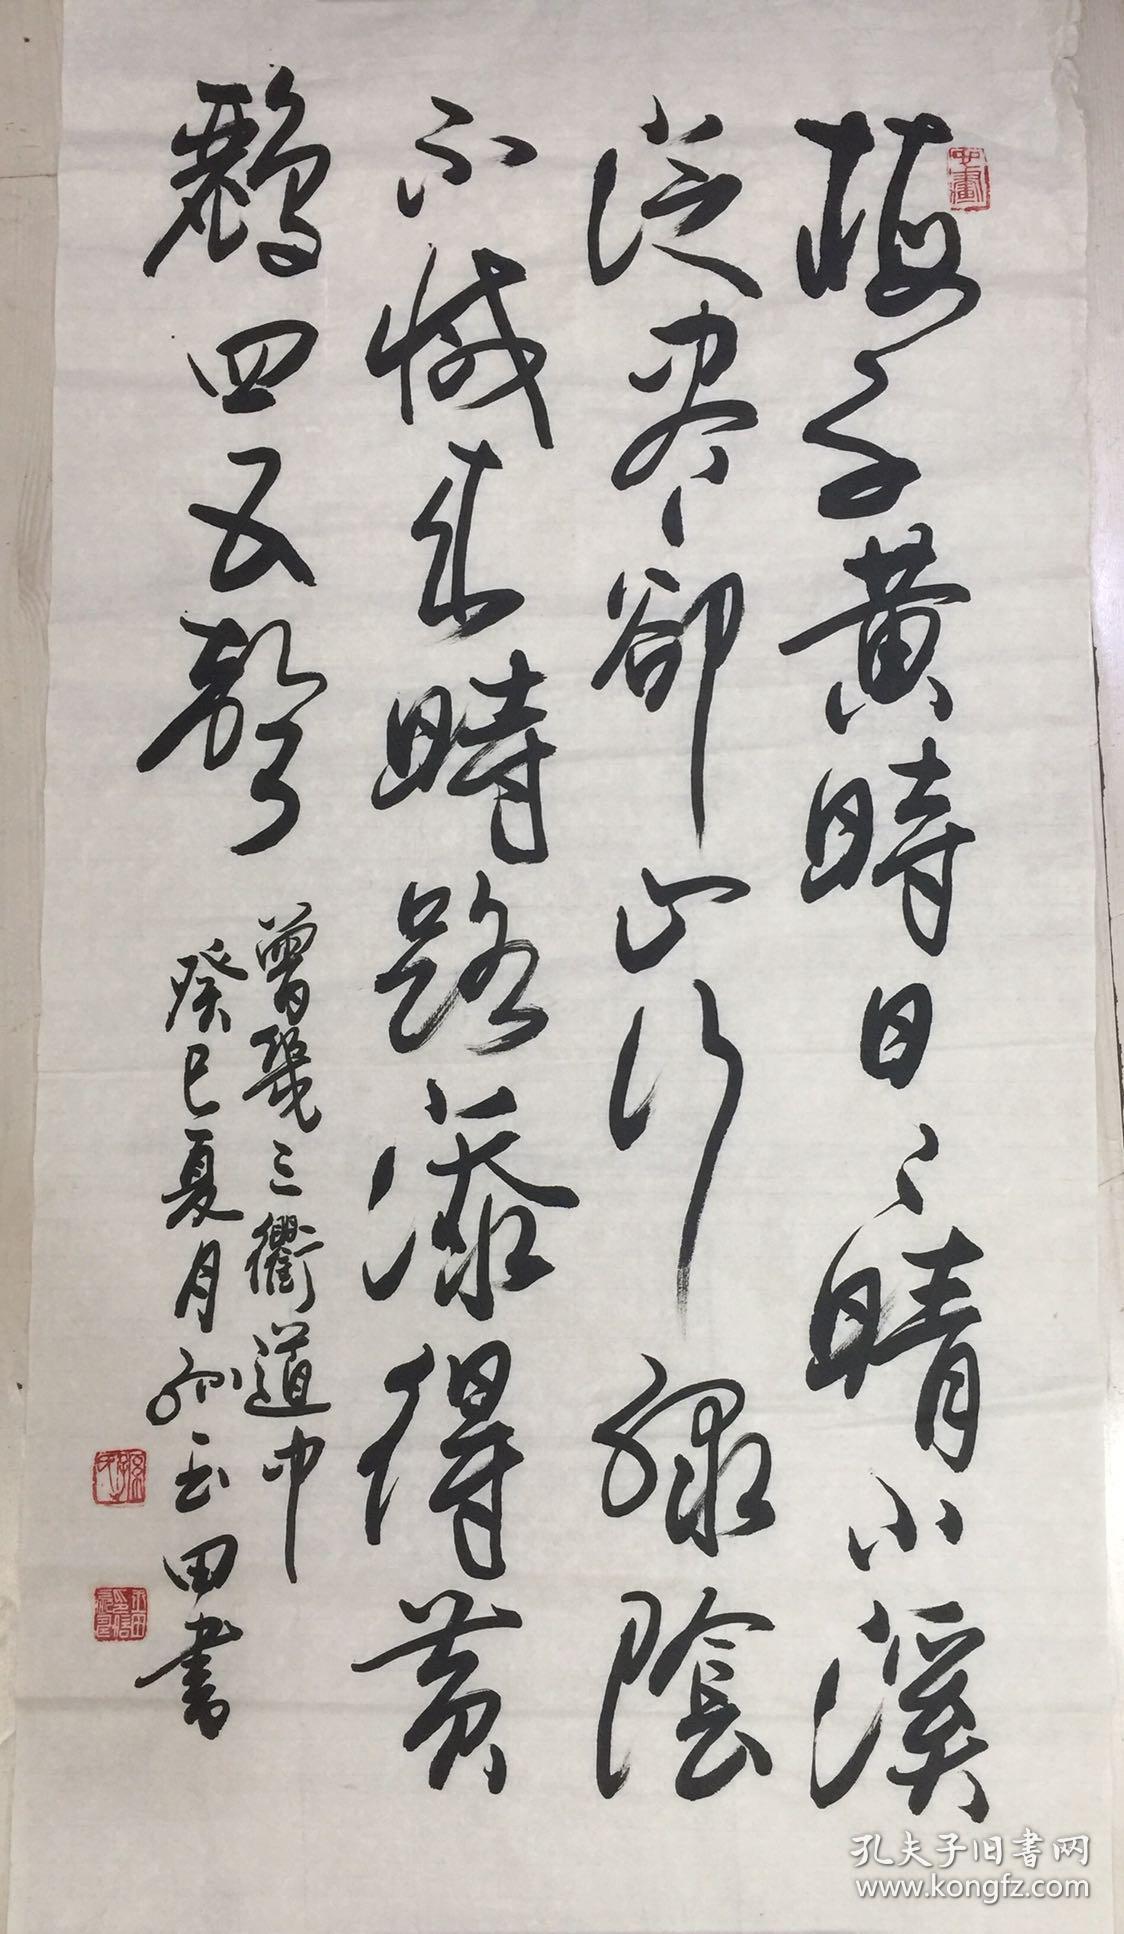 梅子黄時日々晴小溪
泛尽卻山行綠陰
不減来時路添得黄
鸝四五聲
曾幾三衢道中
癸巳夏月孙玉田書
孔夫子旧書网
www.kongfz.com